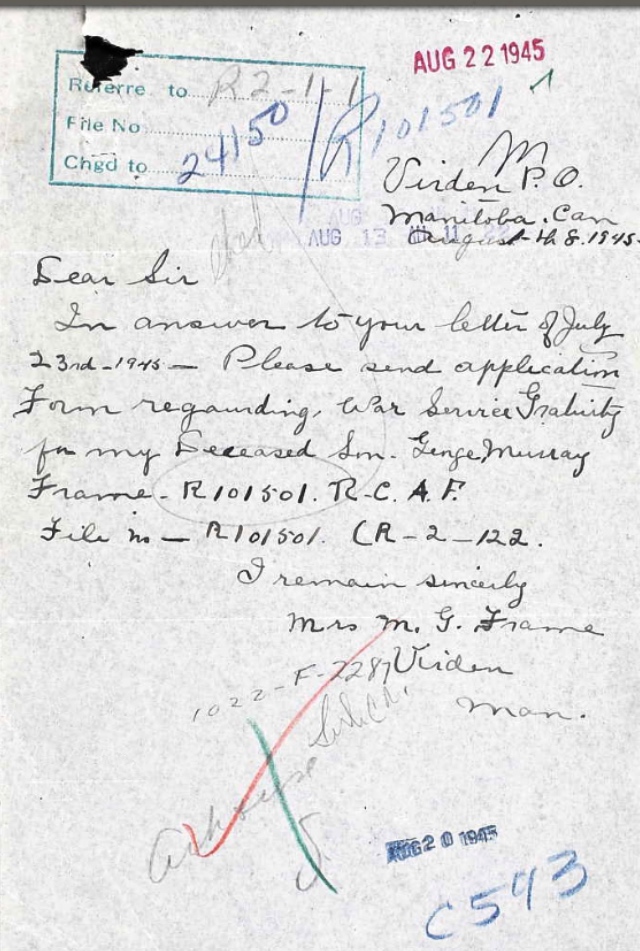 AUG 22 1945
Referre to R2-1-1
File No
Chgd to 24150
R101501
Virden P. O.
Manitoba. Can
AUG 13
August th 8. 1945.
Dear Sir
In answer to your letter of July
23rd-1945 — Please send application
Form regaurding, War Service Gratuity
for my Deceased Son. George Murray
Frame - R101501. R-C. A. F.
File no — R101501. CR-2-122.
I remain sincerly
Mrs M. G. Frame
Virden
Man.
1022-F-2287
AUG 20 1945
C543